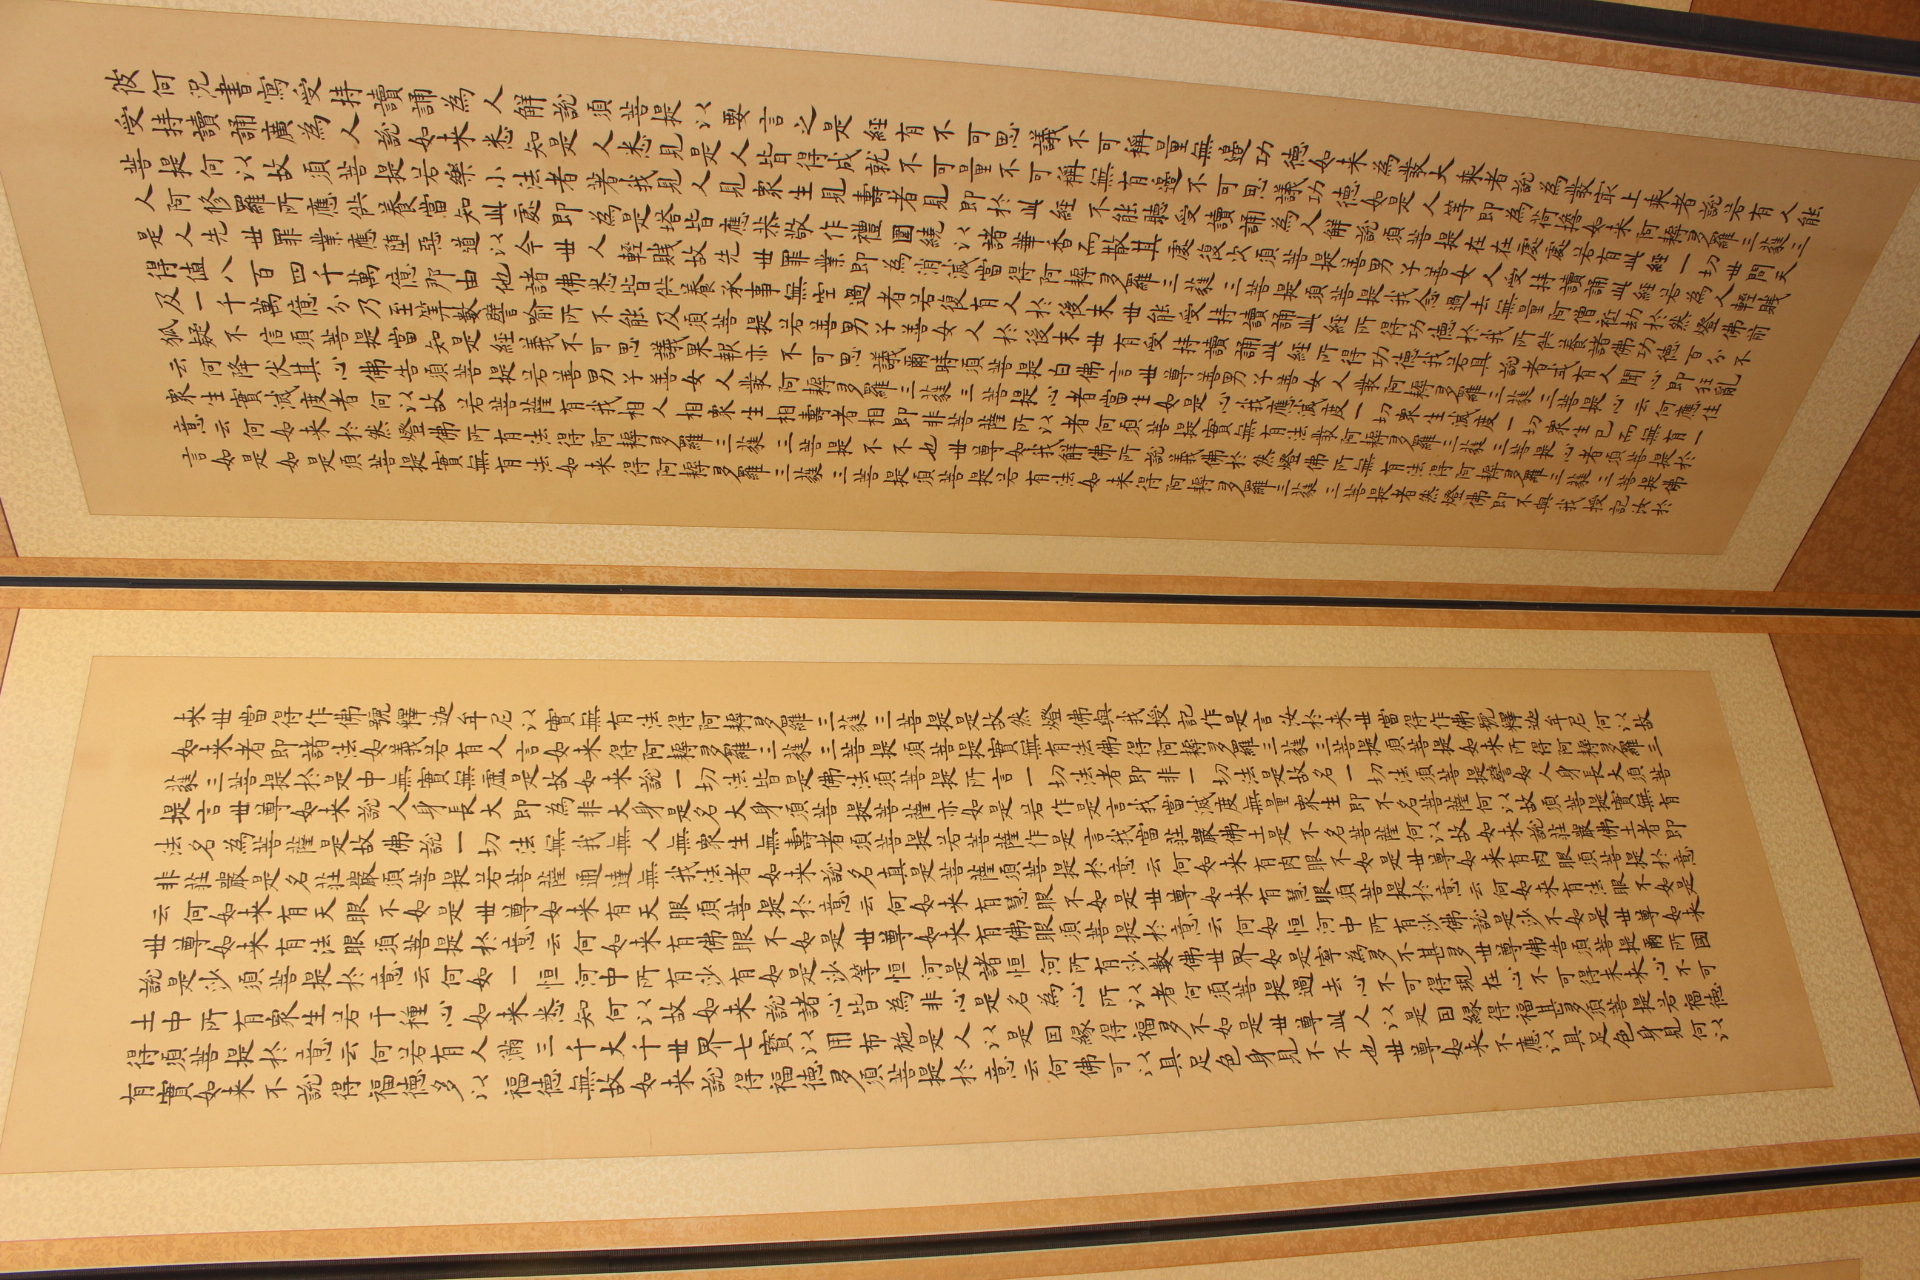 彼何況書寫受持讀誦為人解說須菩提以要言之是經有不可思議不可稱量無邊功德如来為發大乘者說為發最上乘者說若有人能
受持讀誦廣為人說如来悉知是人悉見是人皆得成就不可量不可稱無有邊不可思議功德如是人等即為荷擔如来阿耨多羅三藐三
菩提何以故須菩提若樂小法者著我見人見衆生見壽者見即於此經不能聽受讀誦為人解說須菩提在在處處若有此經一切世間天
人阿修羅所應供養當知此處即為是塔皆應恭敬作禮圍繞以諸華香而散其處復次須菩提善男子善女人受持讀誦此經若為人輕賤
是人先世罪業應墮惡道以今世人輕賤故先世罪業即為消滅當得阿耨多羅三藐三菩提須菩提我念過去無量阿僧祇劫於然燈佛前
得值八百四千萬億那由他諸佛悉皆供養承事無空過者若復有人於後末世能受持讀誦此經所得功德於我所供養諸佛功德百分不
及一千萬億分乃至筭數譬喻所不能及須菩提若善男子善女人於後末世有受持讀誦此經所得功德我若具說者或有人聞心即狂亂
狐疑不信須菩提當知是經義不可思議果報亦不可思議爾時須菩提白佛言世尊善男子善女人發阿耨多羅三藐三菩提心云何應住
云何降伏其心佛告須菩提若善男子善女人發阿耨多羅三藐三菩提心者當生如是心我應滅度一切衆生滅度一切衆生已而無有一
衆生實滅度者何以故若菩薩有我相人相衆生相壽者相即非菩薩所以者何須菩提實無有法發阿耨多羅三藐三菩提心者須菩提於
意云何如来於然燈佛所有法得阿耨多羅三藐三菩提不不也世尊如我解佛所說義佛於然燈佛所無有法得阿耨多羅三藐三菩提佛
言如是如是須菩提實無有法如来得阿耨多羅三藐三菩提須菩提若有法如来得阿耨多羅三藐三菩提者然燈佛即不與我授記汝於
来世當得作佛號釋迦牟尼以實無有法得阿耨多羅三藐三菩提是故然燈佛與我授記作是言汝於来世當得作佛號釋迦牟尼何以故
如来者即諸法如義若有人言如来得阿耨多羅三藐三菩提須菩提實無有法佛得阿耨多羅三藐三菩提須菩提如来所得阿耨多羅三
藐三菩提於是中無實無虛是故如来說一切法皆是佛法須菩提所言一切法者即非一切法是故名一切法須菩提譬如人身長大須菩
提言世尊如来說人身長大即為非大身是名大身須菩提菩薩亦如是若作是言我當滅度無量衆生即不名菩薩何以故須菩提實無有
法名為菩薩是故佛說一切法無我無人無衆生無壽者須菩提若菩薩作是言我當莊嚴佛土是不名菩薩何以故如来說莊嚴佛土者即
非莊嚴是名莊嚴須菩提若菩薩通達無我法者如来說名真是菩薩須菩提於意云何如来有肉眼不如是世尊如来有肉眼須菩提於意
云何如来有天眼不如是世尊如来有天眼須菩提於意云何如来有慧眼不如是世尊如来有慧眼須菩提於意云何如来有法眼不如是
世尊如来有法眼須菩提於意云何如来有佛眼不如是世尊如来有佛眼須菩提於意云何如恒河中所有沙佛說是沙不如是世尊如来
說是沙須菩提於意云何如一恒河中所有沙有如是沙等恒河是諸恒河所有沙數佛世界如是寧為多不甚多世尊佛告須菩提爾所國
土中所有衆生若干種心如来悉知何以故如来說諸心皆為非心是名為心所以者何須菩提過去心不可得現在心不可得未来心不可
得須菩提於意云何若有人滿三千大千世界七寶以用布施是人以是因緣得福多不如是世尊此人以是因緣得福甚多須菩提若福德
有實如来不說得福德多以福德無故如来說得福德多須菩提於意云何佛可以具足色身見不不也世尊如来不應以具足色身見何以